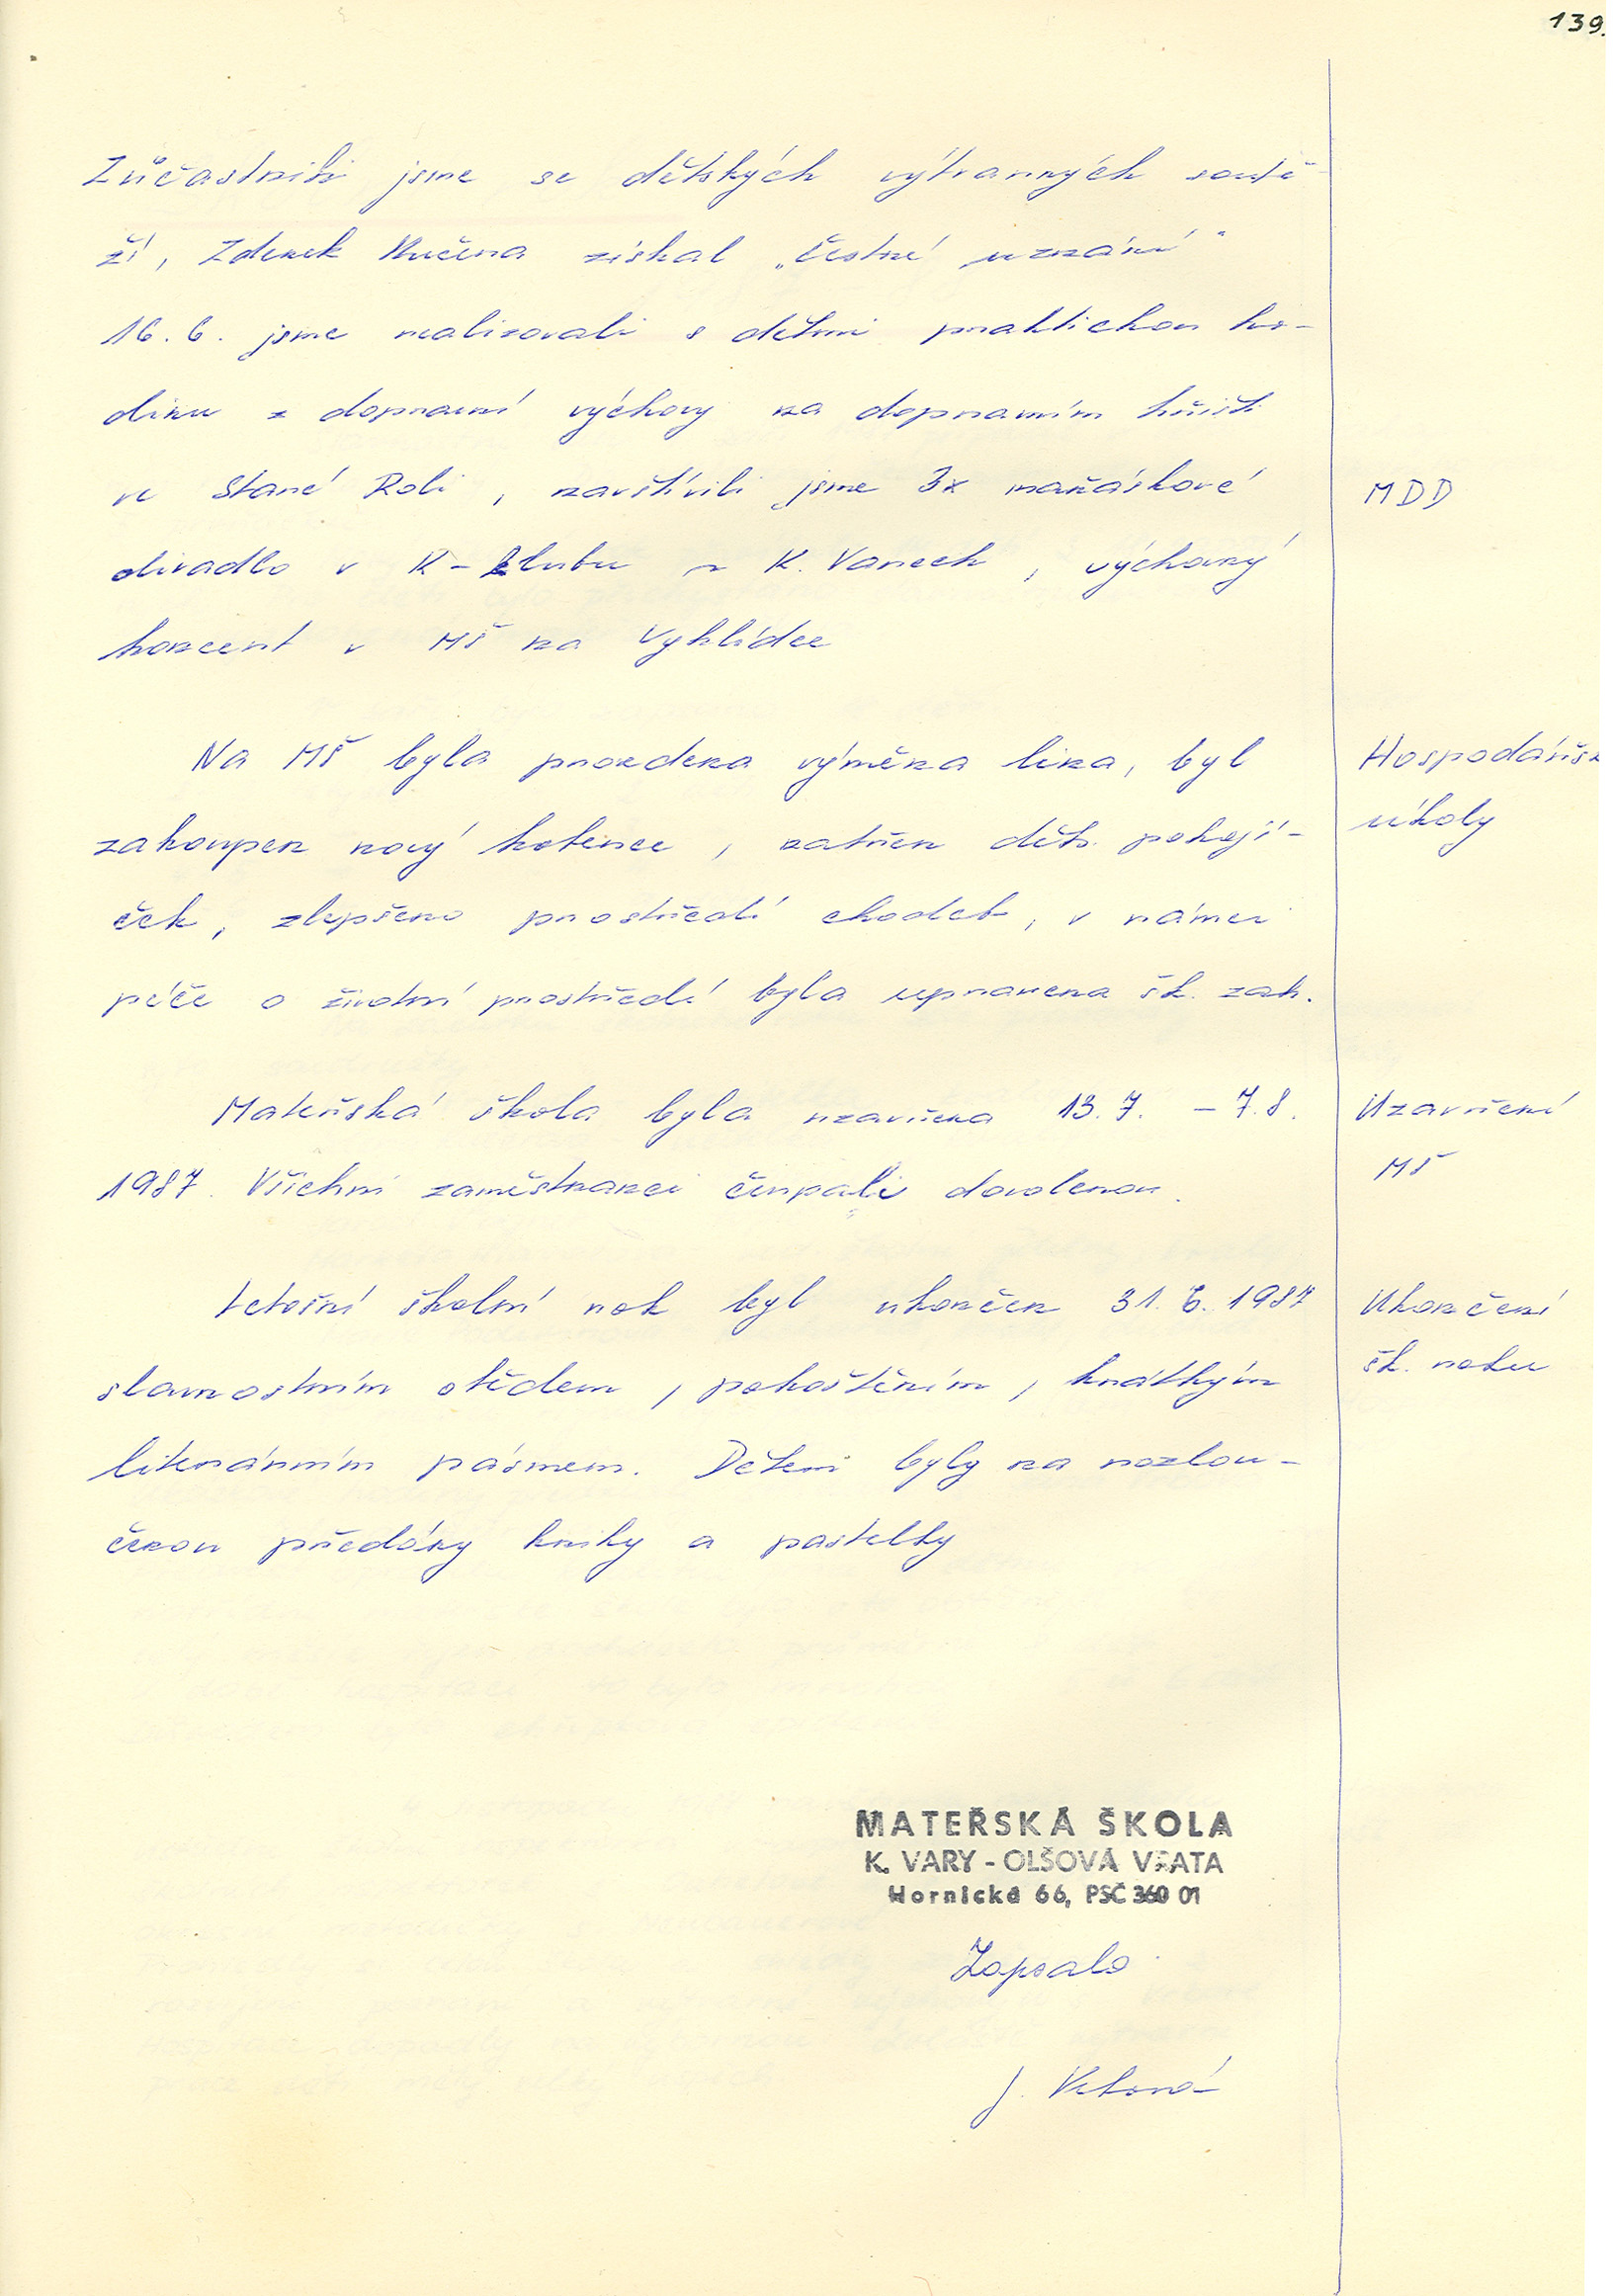 139.
Zúčastnili jsme se dětských výtvarných soutě-
ží, Zdenek Kučera získal „Čestné uznání"
16. 6. jsme realizovali s dětmi praktickou ho-
dinu z dopravní výchovy na dopravním hřišti
ve Staré Roli, navštívili jsme 3x maňáskové
MDD
divadlo v K-klubu v K. Varech, výchovný
koncert v MŠ na Vyhlídce
Na MŠ byla provedena výměna lina, byl
Hospodářsk
zakoupen nový kotinec, natřen děts. pokojí-
úkoly
ček, zlepšeno prostředí chodeb, v rámci
péče o životní prostředí byla upravena šk. zah.
Mateřská škola byla uzavřena 13. 7. - 7. 8.
Uzavření
1987. Všichni zaměstnanci čerpali dovolenou.
MŠ
Letošní školní rok byl ukončen 31. 6. 1987
Ukončení
slavnostním obědem, pohoštěním, krátkým
šk. roku
literárním pásmem. Dětem byly na rozlou-
čenou předány knihy a pastelky
MATEŘSKÁ ŠKOLA
K. VARY - OLŠOVÁ VRATA
Hornická 66, PSČ 360 01
Zapsala
J.